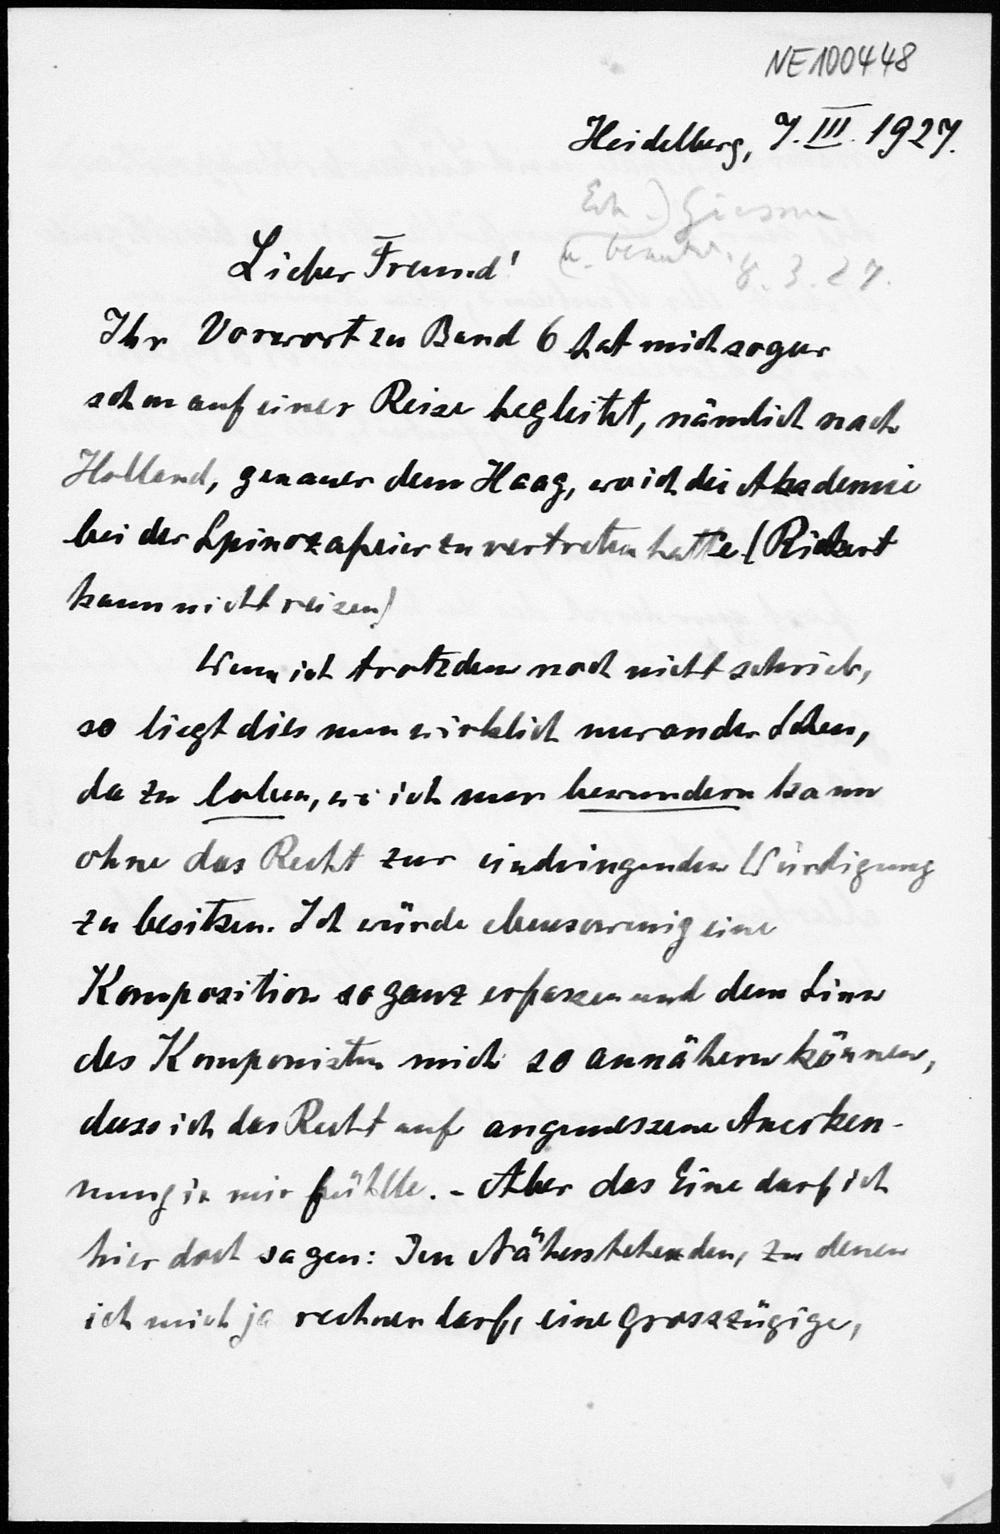 NE100448
Heidelberg, 7. III. 1927.
Giessen
8. 3. 27.
Lieber Freund!
Ihr Vorwort zu Band 6 hat mich sogar
schon auf einer Reise begleitet, nämlich nach
Holland, genauer dem Haag, wo ich die Akademie
bei der Spinozafeier zu vertreten hatte (Rickert
kann nicht reisen)
Wenn ich trotzdem noch nicht schrieb,
so liegt dies nun wirklich nur an der Scheu,
da zu loben, wo ich nur bewundern kann
ohne das Recht zur eindringenden Würdigung
zu besitzen. Ich würde ebensowenig eine
Komposition so ganz erfassen und dem Sinn
des Komponisten mich so annähern können,
dass ich das Recht auf angemessene Anerken-
nung in mir fühlte. - Aber das Eine darf ich
hier doch sagen: Den Näherstehenden, zu denen
ich mich ja rechnen darf, eine grosszügige,